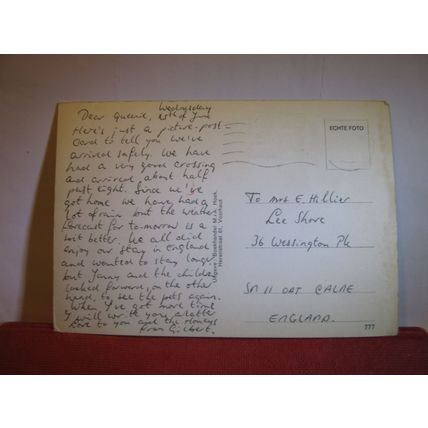 Wednesday
Dear Queenie, 25th of June
Here's just a picture-post-
card to tell you we've
arrived safely. We have
had a very good crossing
and arrived about half
past eight. Since we've
got home we have had a
lot of rain but the weather
forecast for to-morrow is a
bit better. We all did
enjoy our stay in England
and wanted to stay longer
but Janny and the children
looked forward, on the other
hand, to see the pets again.
When I've got more time
I will write you a letter
Love to you and the
from Gilbert.
Uitgave: Boekhandel M.v.d. Hoek,
Herenstraat 81, Voorhout
ECHTE FOTO
To Mrs E. Hillier
Lee Shore
36 Wessington Pk
SN 11 OAT CALNE
ENGLAND.
777